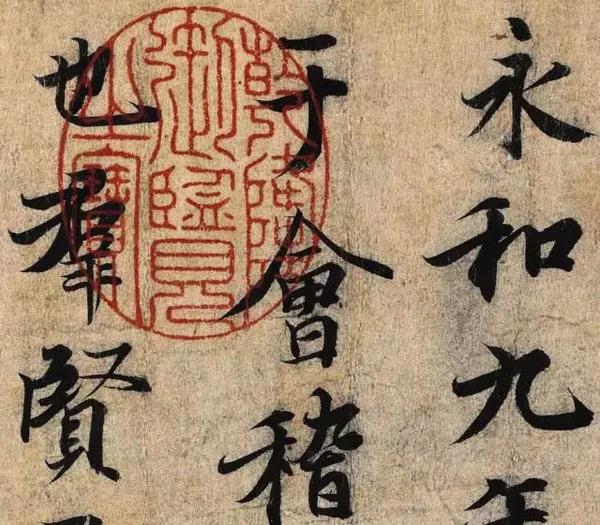 永和九年
于會稽
也羣賢
乾隆
御覽
之寶